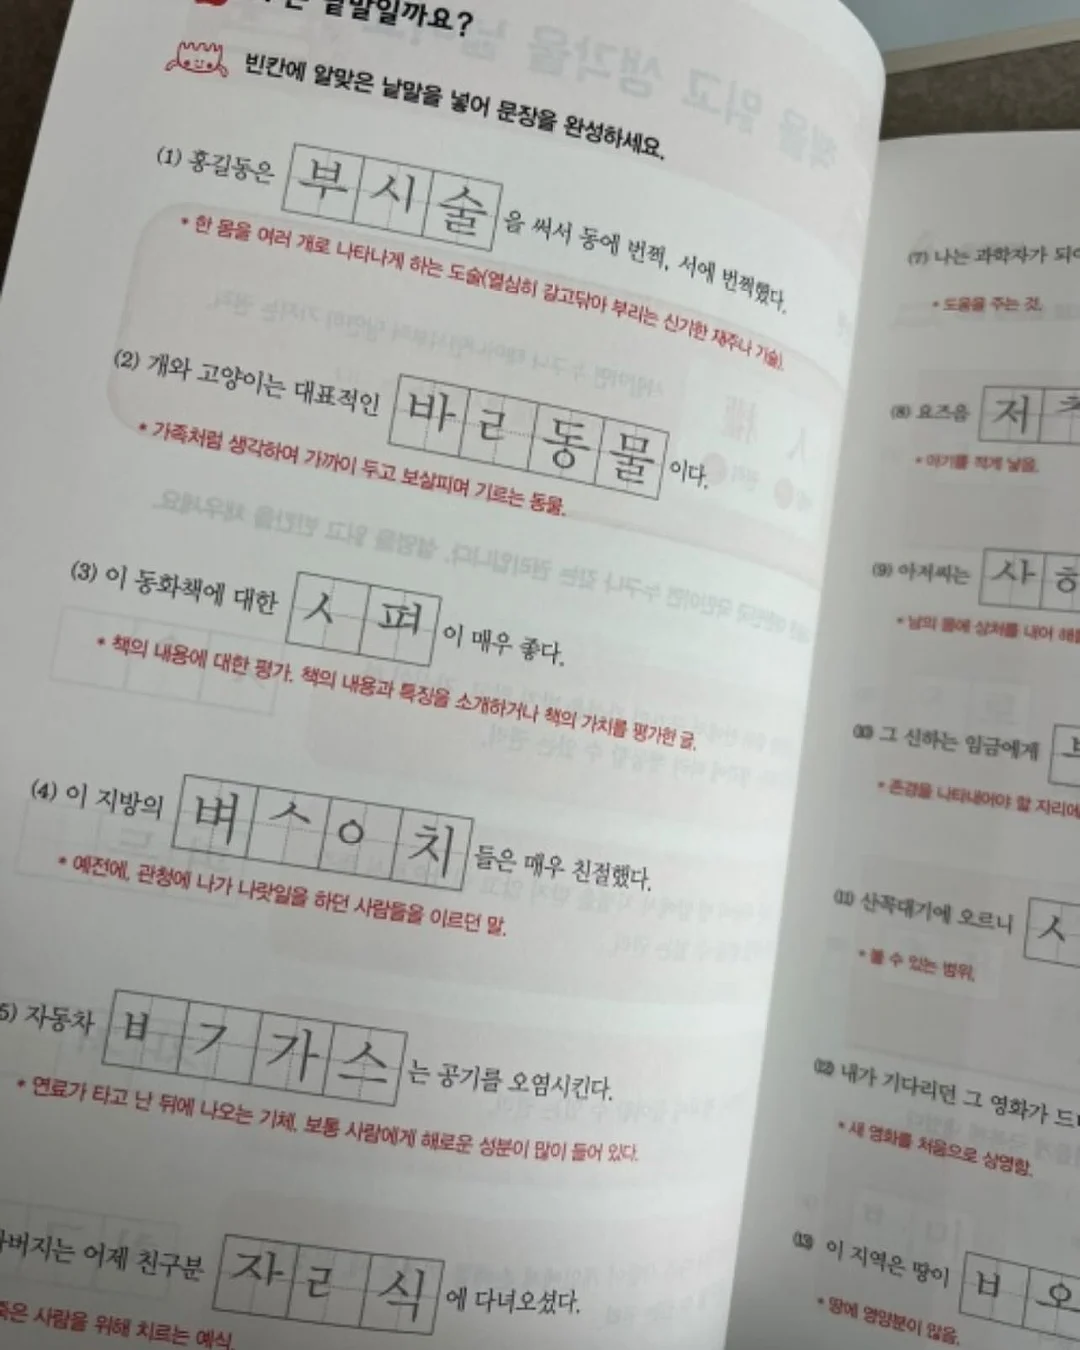 낱말일까요?
빈칸에 알맞은 낱말을 넣어 문장을 완성하세요.
(1) 홍길동은 부시술을 써서 동에 번쩍, 서에 번쩍했다.
* 한 몸을 여러 개로 나타나게 하는 도술(열심히 갈고닦아 부리는 신기한 재주나 기술).
(2) 개와 고양이는 대표적인 바ㄹ동물이다.
* 가족처럼 생각하여 가까이 두고 보살피며 기르는 동물.
(3) 이 동화책에 대한 ㅅ펴이 매우 좋다.
* 책의 내용에 대한 평가. 책의 내용과 특징을 소개하거나 책의 가치를 평가한 글.
(4) 이 지방의 벼ㅅㅇ치들은 매우 친절했다.
* 예전에, 관청에 나가 나랏일을 하던 사람들을 이르던 말.
5) 자동차 ㅂㄱ가스는 공기를 오염시킨다.
* 연료가 타고 난 뒤에 나오는 기체. 보통 사람에게 해로운 성분이 많이 들어 있다.
버지는 어제 친구분 자ㄹ식에 다녀오셨다.
죽은 사람을 위해 치르는 예식.
(7) 나는 과학자가 되어
* 도움을 주는 것.
(8) 요즈음 저
* 아기를 적게 낳음.
(9) 아저씨는 사ㅎ
* 남의 몸에 상처를 내어 해
(10) 그 신하는 임금에게
* 존경을 나타내어야 할 자리에
(11) 산꼭대기에 오르니 ㅅ
* 볼 수 있는 범위.
(12) 내가 기다리던 그 영화가 드
* 새 영화를 처음으로 상영함.
(13) 이 지역은 땅이 ㅂ오
* 땅에 영양분이 많음.